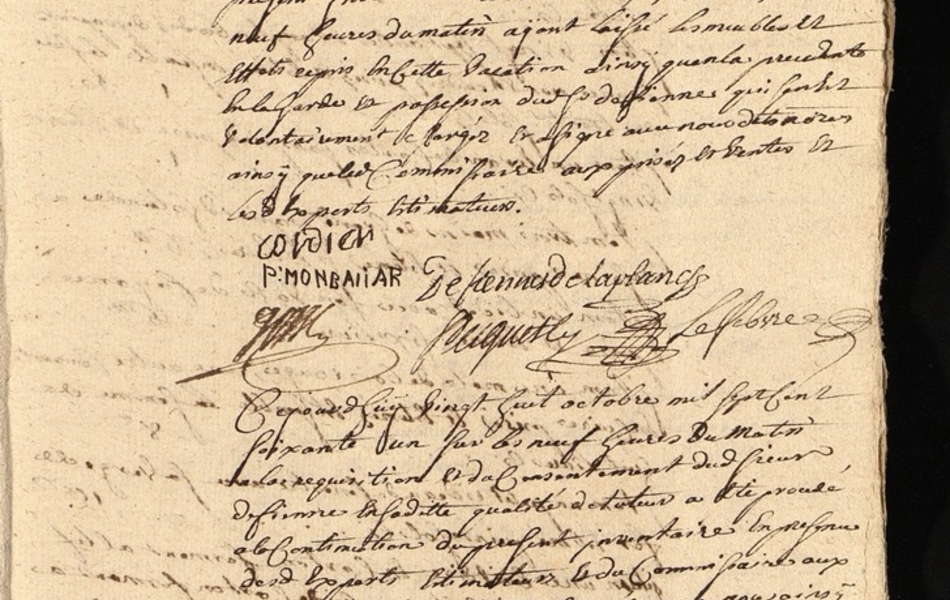 neuf heures du matin ayant laissé les meubles et
Effets repris En Cette Vacation ainsy quen la precedente
En la Garde et possession dud Sr defienne qui sen Est
Volontairement Chargéz Et a signé avec nous
ainsy queled Commissaire aux prisés Et Ventes Et
les d Experts Estimateurs.
cordier
P: MONBAIIAR
Lefebvre
Cejourd'huy Vingt huit octobre mil sept Cent
soixante un sur les neuf heures Du Matin
a la requisition Et du Consentement dud Sieur
defienne En saditte qualité de tuteur a Eté procédé
a la Continuation du present inventaire En presence
desd Experts Estimateurs Et du Commissaire aux